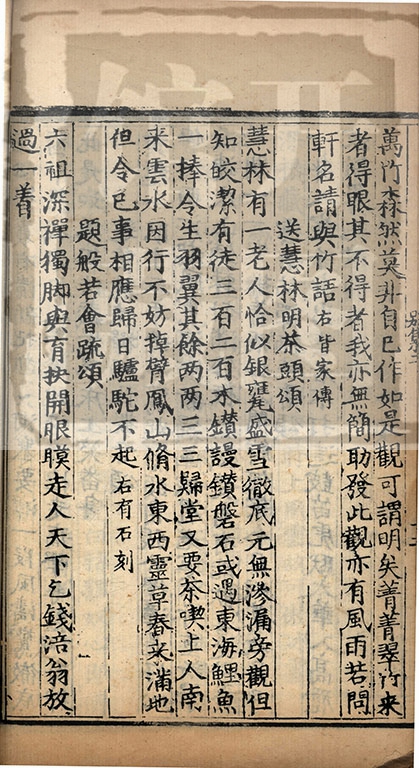 萬竹森然莫非自己作如是觀可謂明矣菁菁翠竹來
者得眼其不得者我亦無簡助發此觀亦有風雨若問
軒名請與竹語右皆家傳
送慧林明茶頭頌
慧林有一老人恰似銀甕盛雪徹底元無滲漏旁觀但
知皎潔有徒三百二石木鑽謾鑽磐石或遇東海鯉魚
一捧令生羽翼其餘两两三三歸堂又要茶喫上人南
来雲水因行不妨掉臂鳳山脩水東西靈草春来滿地
但令已事相應歸日驢駞不起右有石刻
題般若會疏頌
六祖深禪獨脚與有抉開眼膜走人天下乞錢涪翁放
過一着